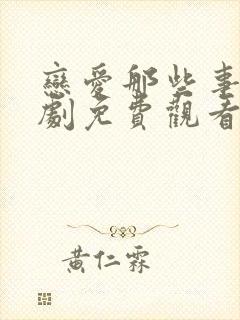 戀愛那些事
劇免費觀看
黃仁霖